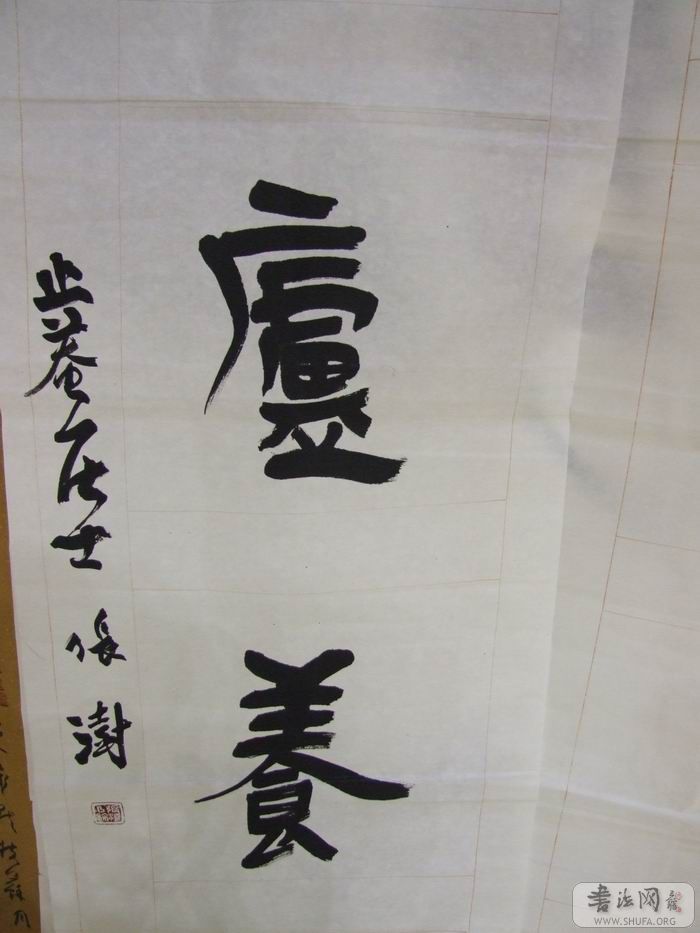 廬養
止菴居士 張澍
書法网
WWW.SHUFA.ORG